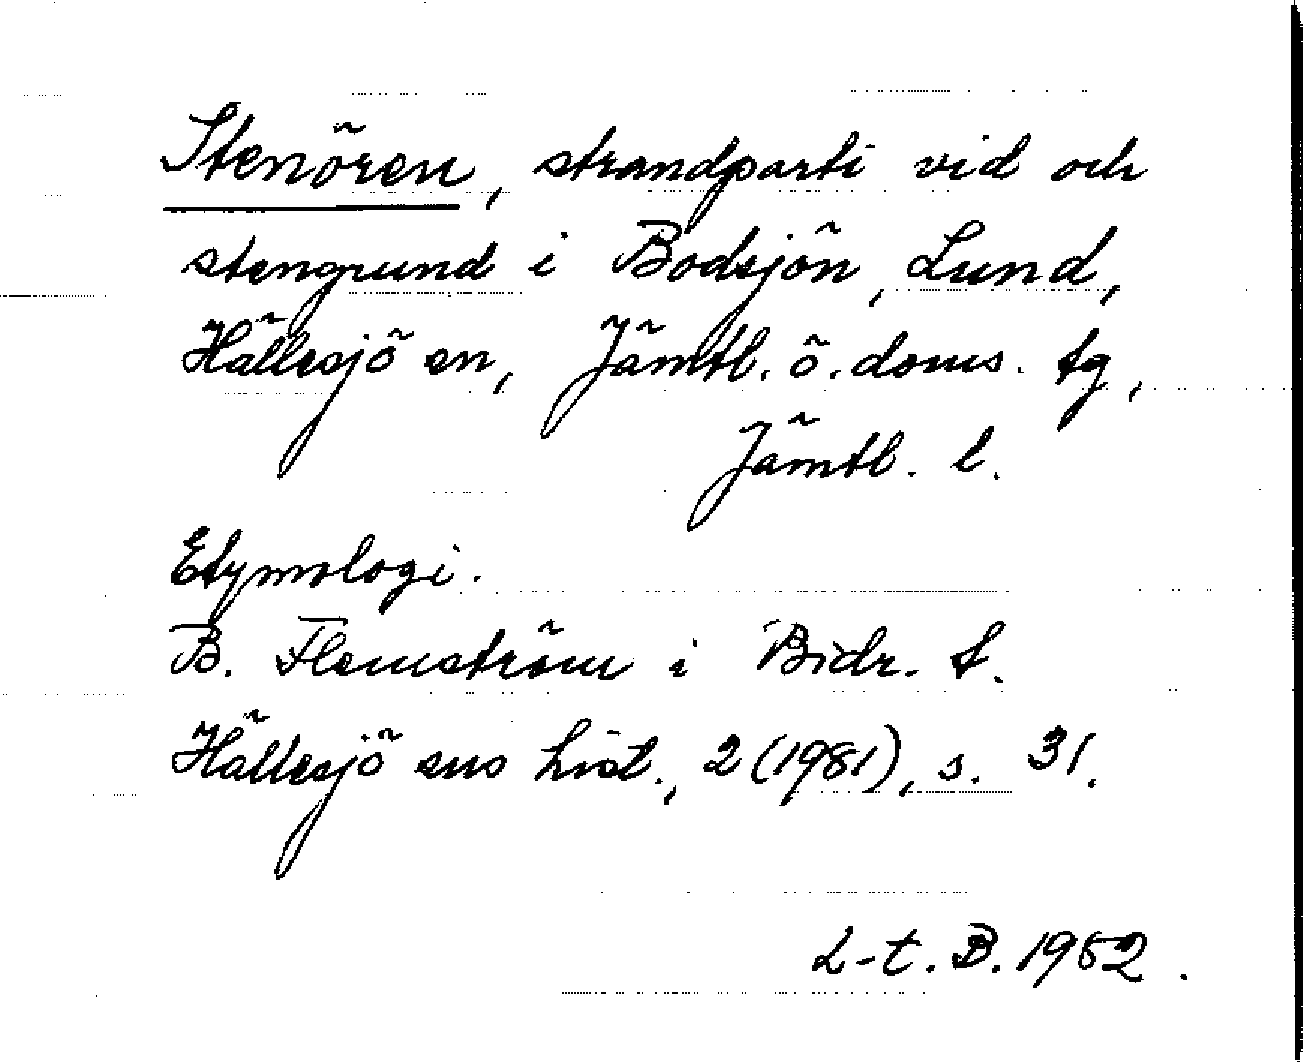 Stenören, strandparti vid och
stengrund i Bodsjön, Lund,
Hällesjö sn, Jämtl. ö. doms. tg,
Jämtl. l.
Etymologi.
B. Flemström i Bidr. t.
Hällesjö sns hist., 2 (1981), s. 31.
L-t. B. 1982.